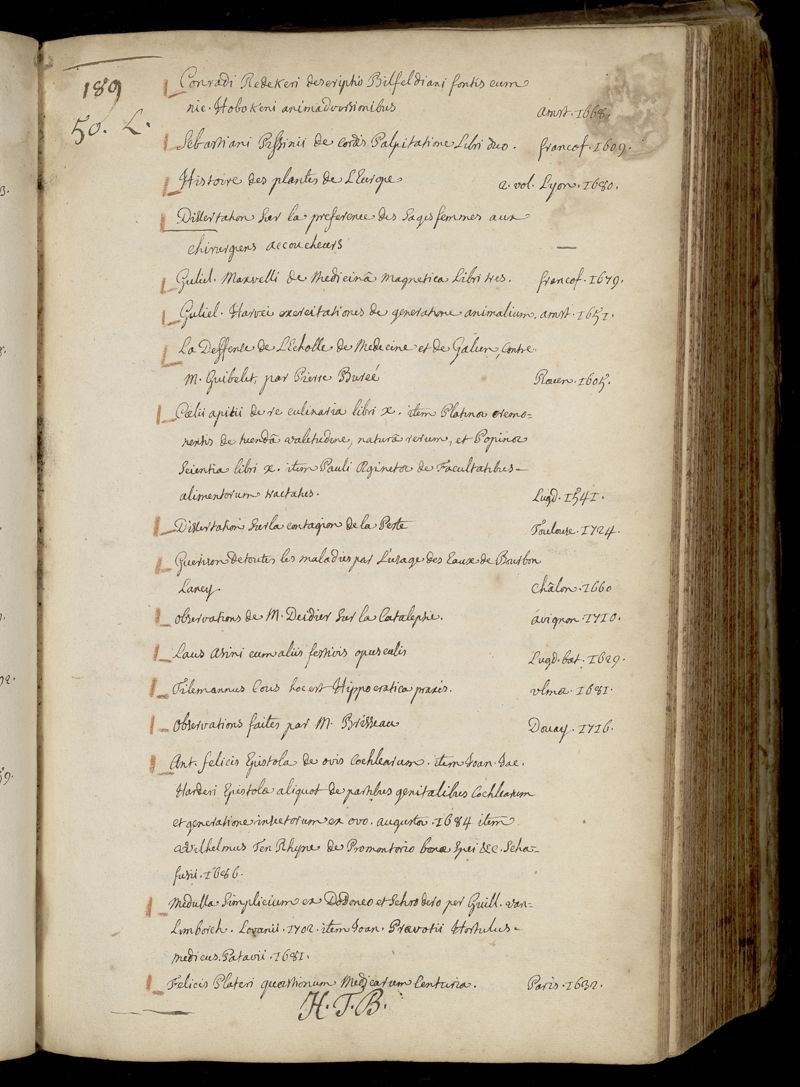 189
50. L.
Conradi Redekeri descriptio Bilfeldiani fontis cum
nic. Hobokeni animadversionibus amst. 1668.
Sebastiani Pissinii de cordis Palpitatione Libri duo. francof. 1609.
Histoire des plantes de L'Europe 2. vol. Lyon. 1680.
Dissertation Sur la preference des Sages femmes aux
chirurgiens accoucheurs —
Guliel. Maxvelli de Medicinâ magnetica Libri tres. francof. 1679.
Guliel. Harvei exercitationes de generatione animalium. amst. 1651.
La Deffense de L'Echolle de Medecine et de Galien, Contre
M. Guibelet, par Pierre Bureé Rouen. 1605.
Cœlii apitii de re culinaria libri x. item Platinæ cremo-
nensis de tuendâ valetudine, naturâ rerum, et Popinæ
Scientia libri x. item Pauli Æginetæ de Facultatibus-
alimentorum tractatus. Lugd. 1541.
Dissertation Sur la contagion de la Peste Toulouse. 1724.
Guerison De toutes les maladies par L'usage des Eaux de Bourbon
Lancy. Châlon. 1660
observations de M. Deidier Sur la Catalepsie. avignon 1710.
Laus Asini cum aliis festivis opusculis Lugd. bat. 1629.
Tilemannus Cous hoc est Hippocratica praxis. vlmæ. 1681.
Observations faites par M. Brisseau Douay. 1716.
Ant. felicis Epistola de ovis Cochlearum. item Joan. Jac.
Harderi Epistolæ aliquot de partibus genitalibus Cochlearum
et generatione insectorum ex ovo. augustæ. 1684 item
Wilhelmus Ten Rhyne de Promontorio bonæ Spei &c. Scha-
fusii. 1686.
Medulla Simplicium ex Dodoneo et Schrodero per Guill. van-
Limborch. Lovanii. 1702. item Joan. Prævotii Hortulus-
medicus. Patavii. 1681.
Felicis Plateri quæstionum Medicarum Centuria. Paris. 1632.
H. T. B.